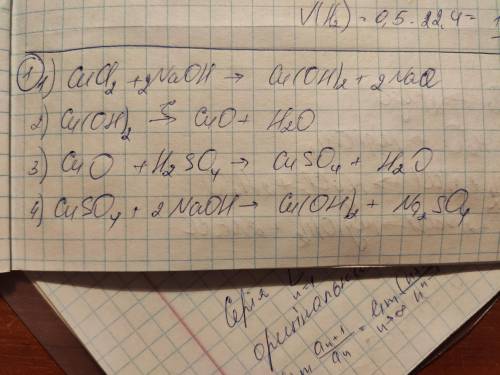 V(H₂) = 0,5 · 22,4 =
1
1) CuCl₂ + 2NaOH → Cu(OH)₂ + 2NaCl
2) Cu(OH)₂ → CuO + H₂O
3) CuO + H₂SO₄ → CuSO₄ + H₂O
4) CuSO₄ + 2NaOH → Cu(OH)₂ + Na₂SO₄
Серія
n=1
aₙ₊₁ / aₙ =
n→∞